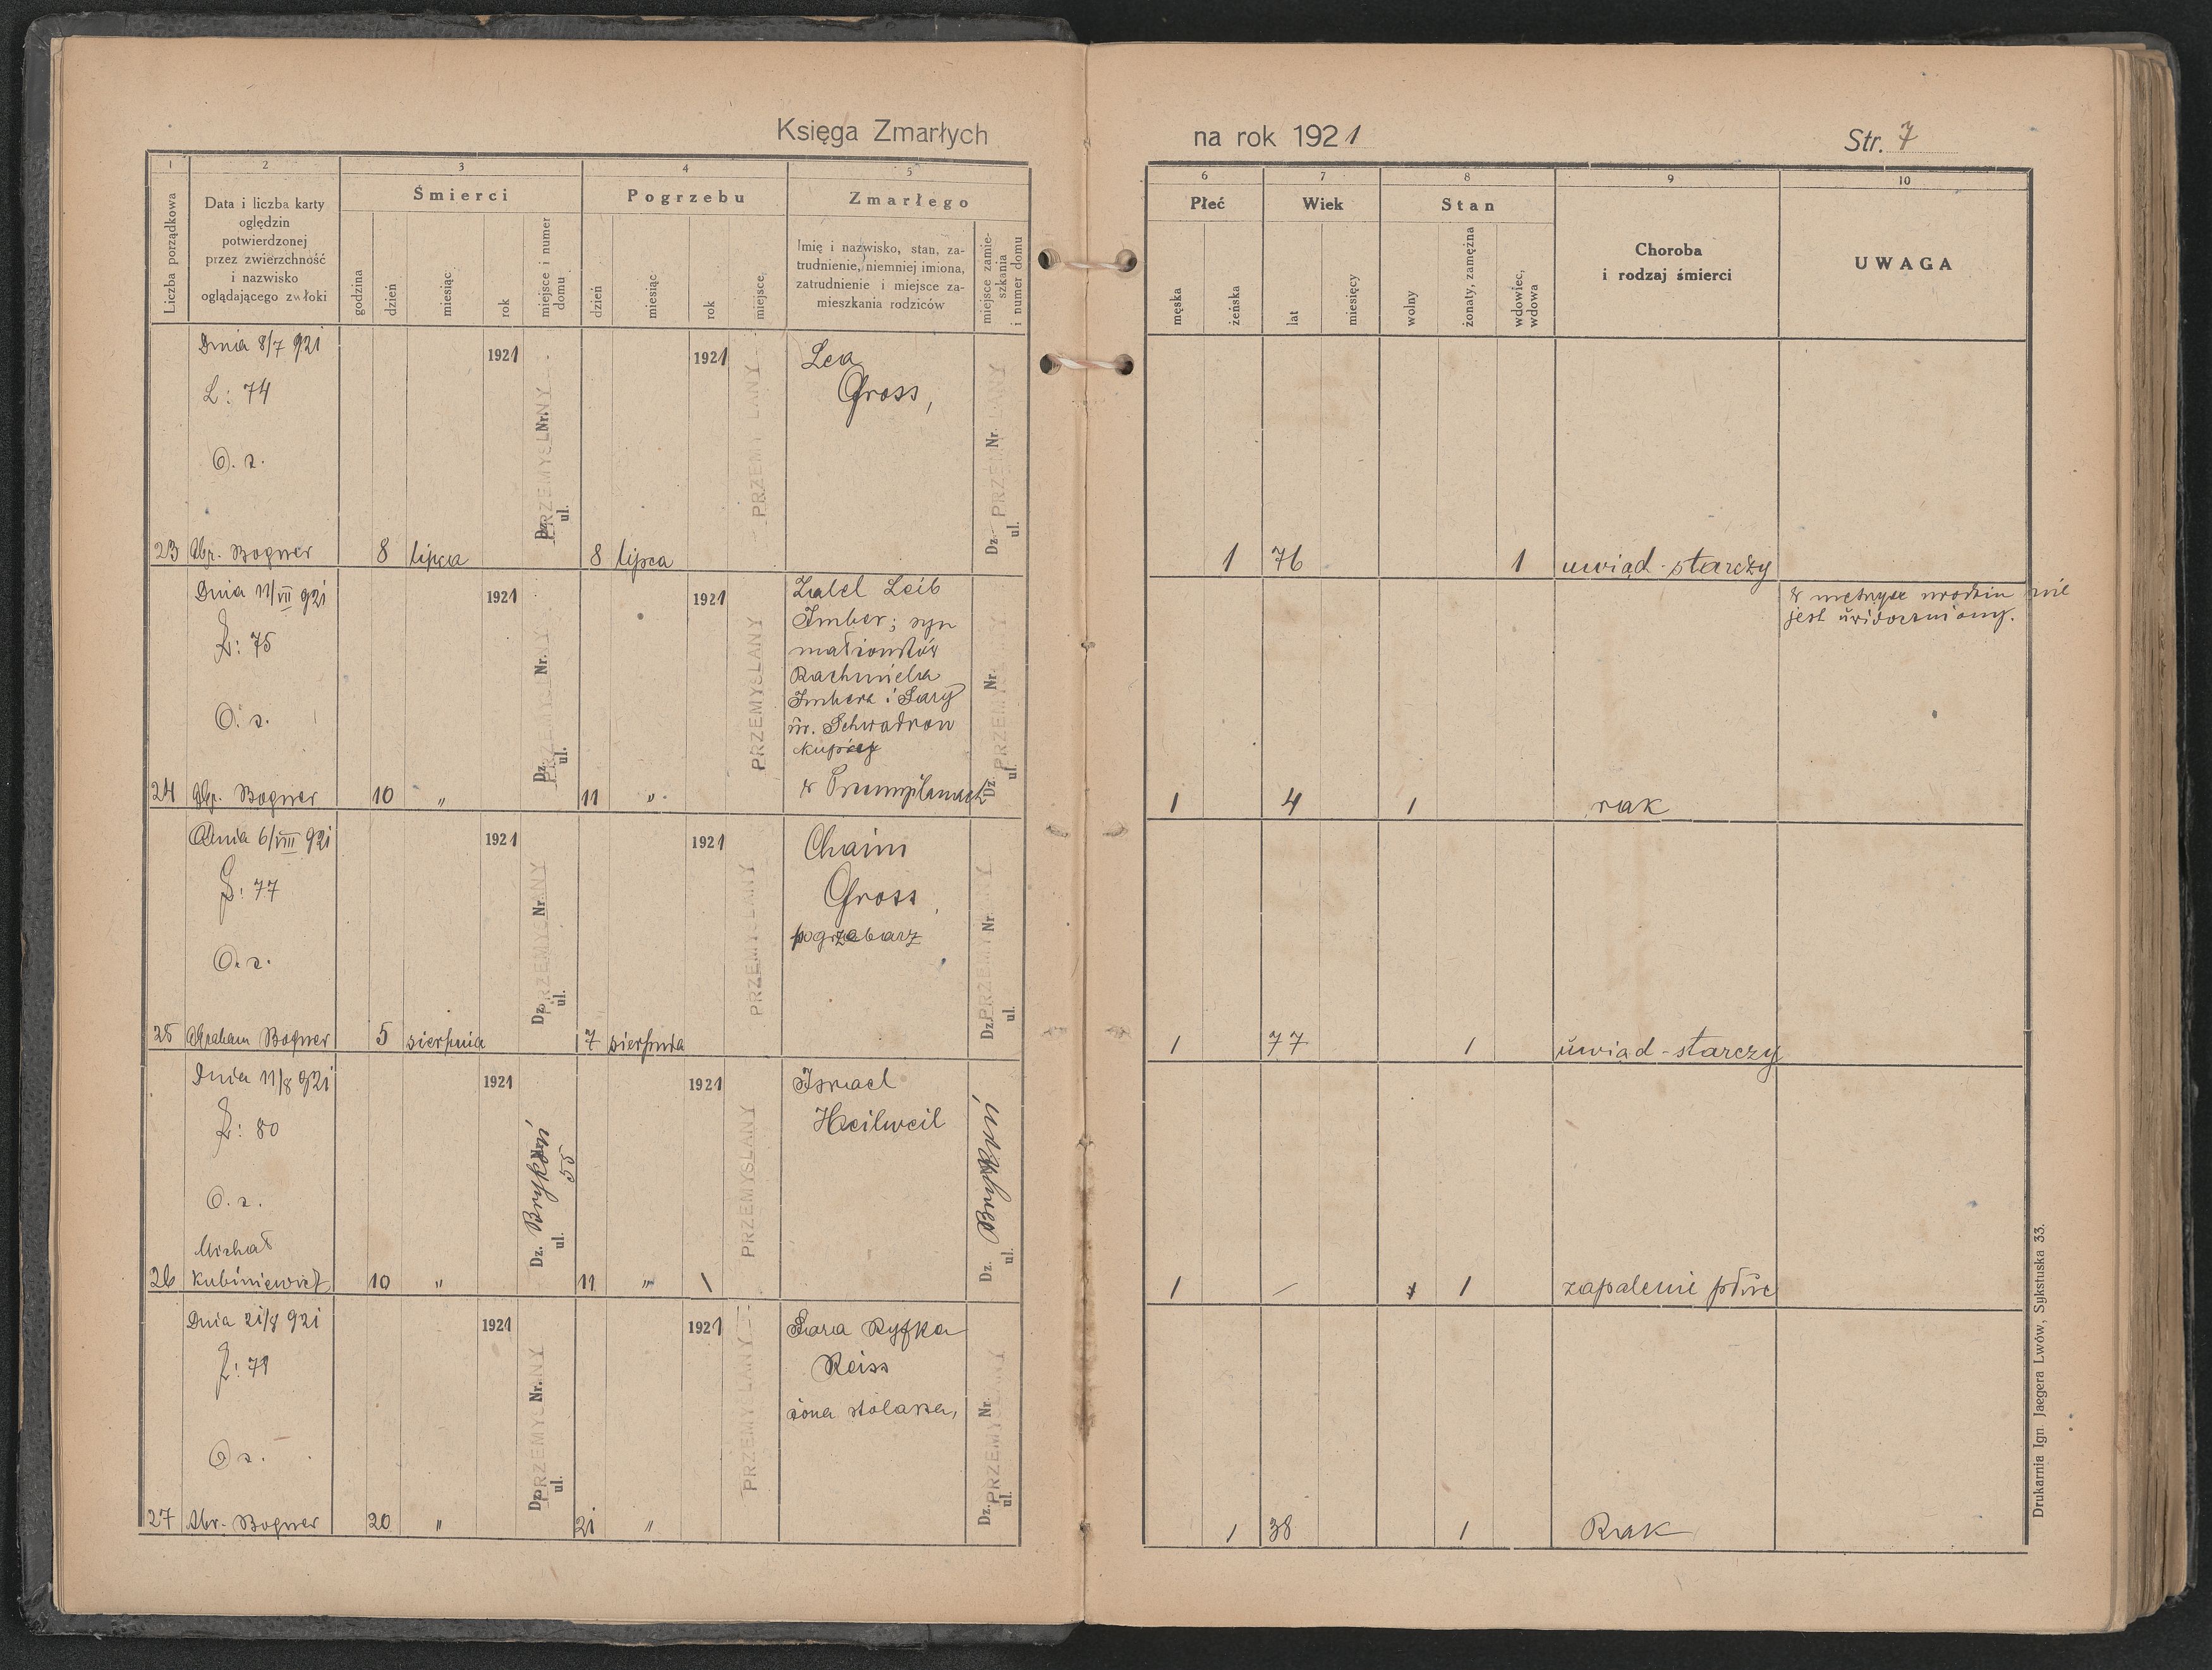 Księga Zmarłych na rok 1921 Str. 7
1 2 3 4 5 6 7 8 9 10
Liczba porządkowa
Data i liczba karty
oględzin
potwierdzonej
przez zwierzchność
i nazwisko
oglądającego zwłoki
Śmierci
godzina
dzień
miesiąc
rok
miejsce i numer
domu
Pogrzebu
dzień
miesiąc
rok
miejsce
Zmarłego
Imię i nazwisko, stan, za-
trudnienie, niemniej imiona,
zatrudnienie i miejsce za-
mieszkania rodziców
miejsce zamie-
szkania
i numer domu
Płeć
męska
żeńska
Wiek
lat
miesięcy
Stan
wolny
żonaty, zamężna
wdowiec,
wdowa
Choroba
i rodzaj śmierci
UWAGA
Dnia 8/7 921
L: 74
O. z.
23 Abr. Bogner
8 lipca 1921
PRZEMYSLANY
Dz. Nr.
ul.
8 lipca 1921
PRZEMYSLANY
Lea
Gross,
PRZEMYSLANY
Dz. Nr.
ul.
1 76 1 uwiąd-starczy
Dnia 11/VII 921
L: 75
O. z.
24 Abr. Bogner
10 " 1921
PRZEMYSLANY
Dz. Nr.
ul.
11 " 1921
PRZEMYSLANY
Leib
Imber; syn
małżonków
Rachmiela
Imbera i Sary
ur. Schwadron
kupcy
w Przemyślanach
PRZEMYSLANY
Dz. Nr.
ul.
1 4 1 rak
w metryce urodzin nie
jest uwidoczniony.
Dnia 6/VIII 921
L: 77
O. z.
25 Abraham Bogner
5 sierpnia 1921
PRZEMYSLANY
Dz. Nr.
ul.
7 sierpnia 1921
PRZEMYSLANY
Chaim
Gross,
pogrzebarz
PRZEMYSLANY
Dz. Nr.
ul.
1 77 1 uwiąd-starczy
Dnia 11/8 921
L: 80
O. z.
Michał
26 Kubiniewicz
10 " 1921
Dz. Brykoń Nr.
ul. 55
11 " 1921
PRZEMYSLANY
Israel
Heilweil
Dz. Brykoń
ul.
1 - 1 zapalenie płuc
Dnia 21/8 921
L: 79
O z.
27 Abr. Bogner
20 " 1921
PRZEMYSLANY
Dz. Nr.
ul.
21 " 1921
PRZEMYSLANY
Sara Ryfka
Reiss
żona stolarza,
PRZEMYSLANY
Dz. Nr.
ul.
1 38 1 Rak
Drukarnia Ign. Jaegera Lwów, Sykstuska 33.